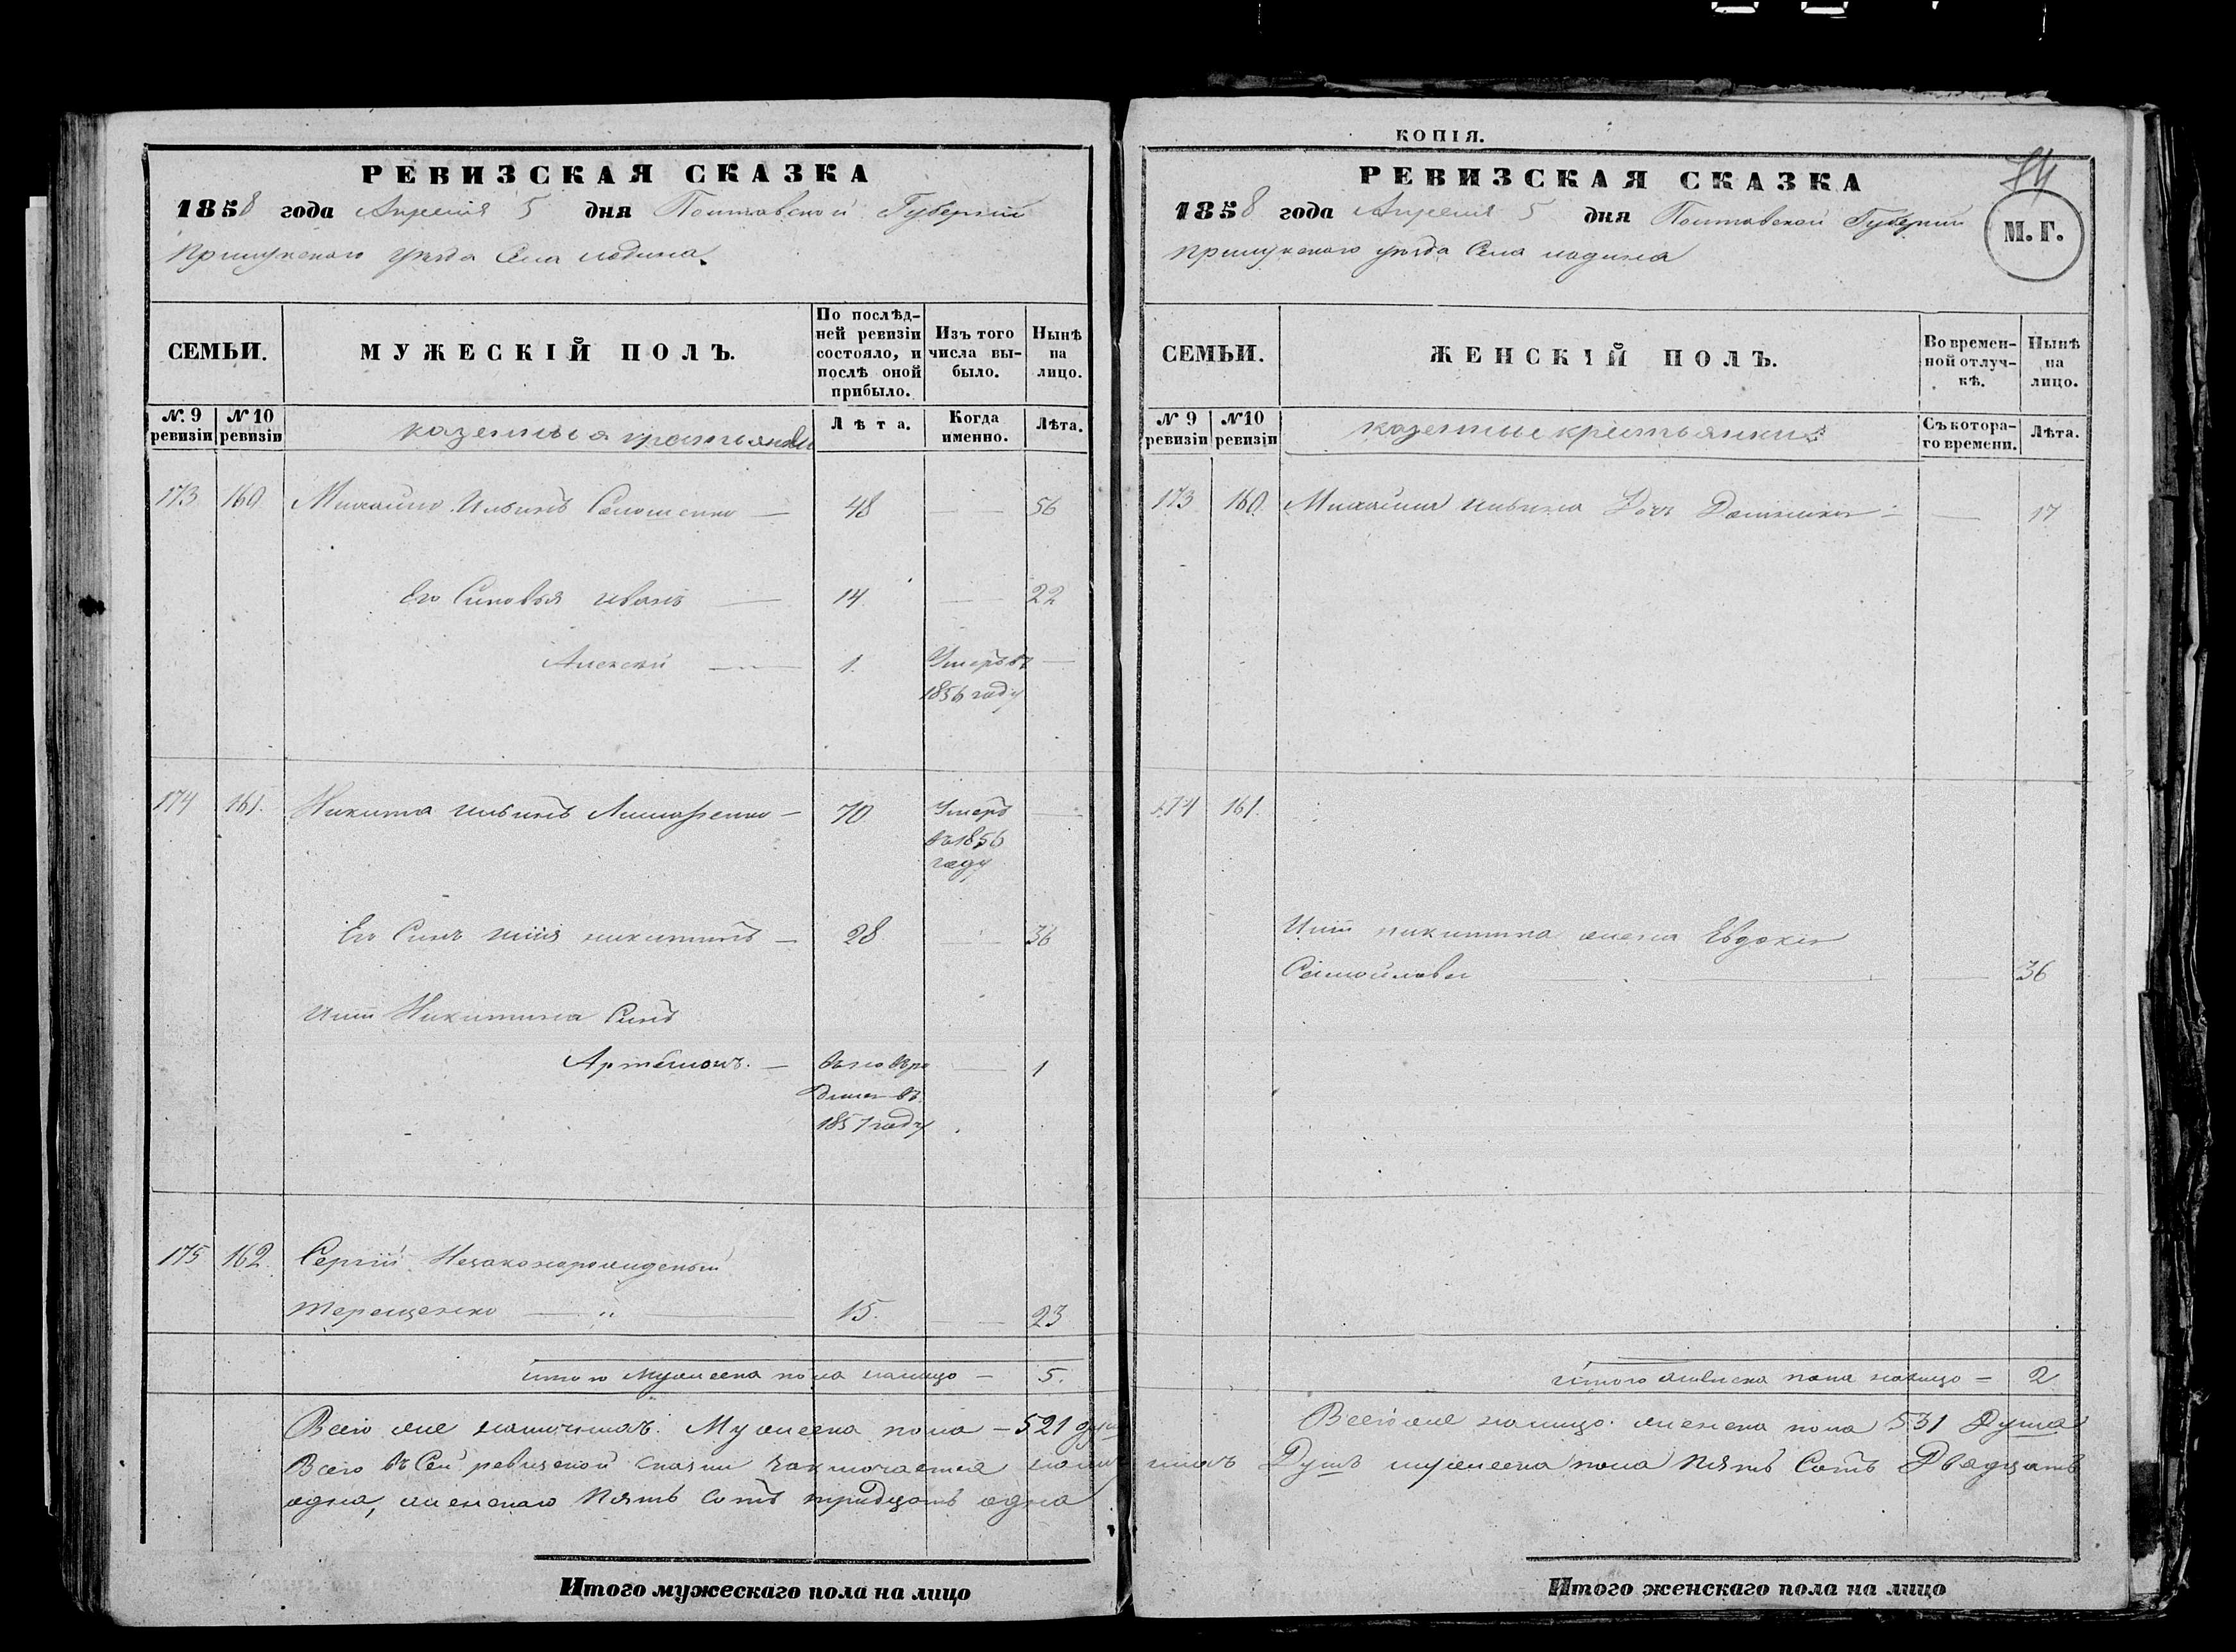 РЕВИЗСКАЯ СКАЗКА
1858 года Апреля 5 дня Полтавской Губерніи
Прилукского уезда Села
СЕМЬИ.
МУЖЕСКІЙ ПОЛЪ.
По послѣд-
ней ревизіи
состояло, и
послѣ оной
прибыло.
Изъ того
числа вы-
было.
Нынѣ
на
лицо.
№. 9
ревизіи
№ 10
ревизіи
казенныя крестьяне
Лѣта.
Когда
именно.
Лѣта.
173 160 Михайло Ильинъ — 48 — 56
Его Синовья Иванъ — 14 — 22
Алексей — 1. Умеръ въ —
1856 году
174 161. Никита Ильинъ — 70 Умеръ —
въ 1856
году
Его Синъ Илія Никитинъ — 28 — 36
Иліи Никитина Синъ
Артемонъ. — вновь ро — 1
въ
1857 году
175 162. Сергій Незаконорожденый
Терещенко — „ — 15. — 23
итого мужеска пола налицо — 5.
Всего же Мужеска пола — 521
Всего въ Сей ревизской сказки заключается
одна, женскаго Пять Сотъ тридцать одна
Итого мужескаго пола на лицо
КОПІЯ.
74
РЕВИЗСКАЯ СКАЗКА
1858 года Апреля 5 дня Полтавской Губерніи
М. Г.
Прилукского уезда Села
СЕМЬИ.
ЖЕНСКІЙ ПОЛЪ.
Во времен-
ной отлуч-
кѣ.
Нынѣ
на
лицо.
№ 9
ревизіи
№ 10
ревизіи
казенные крестьянки
Съ котора-
го времени.
Лѣта.
173 160. Михайла Ильина Дочь — 17
174 161.
Иліи Никитина жена Евдокия
Самойлова — 36
итого женска пола налицо — 2
Всего же налицо. женска пола 531 Душа
Душъ мужеска пола Пять Сотъ Двадцать
Итого женскаго пола на лицо